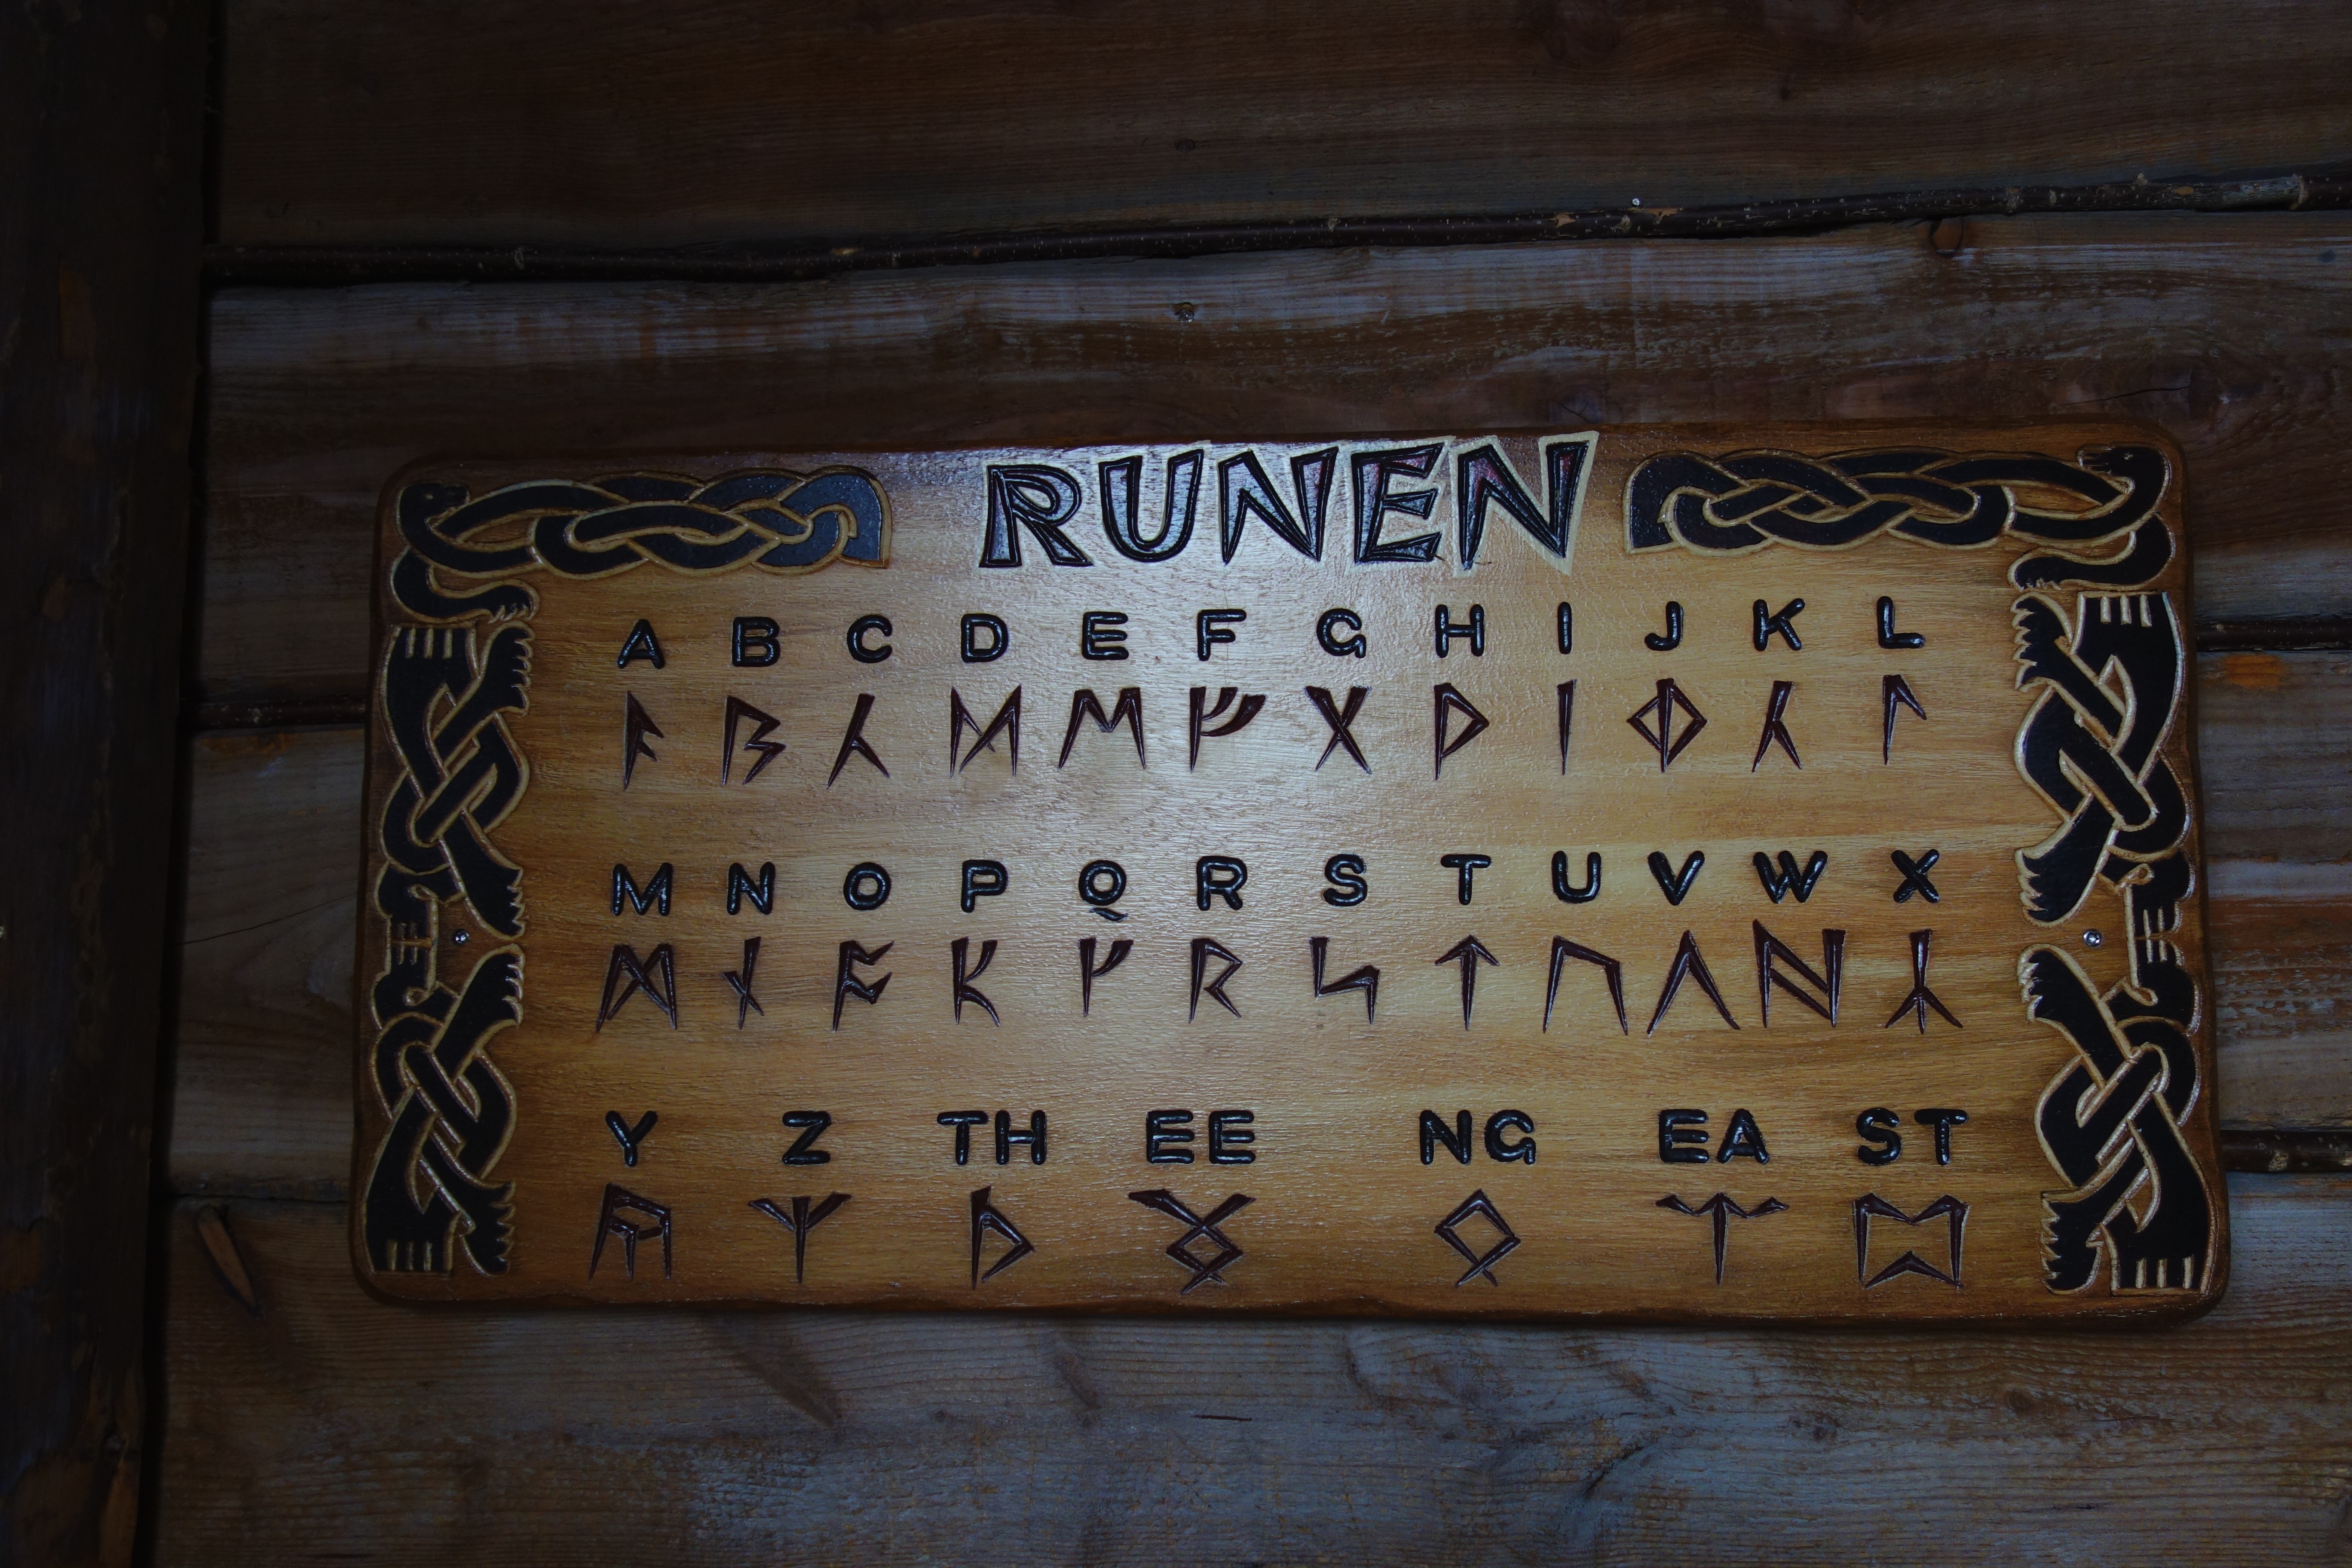 RUNEN
A B C D E F G H I J K L
ᚨ ᛒ ᚳ ᛞ ᛖ ᚠ ᚷ ᚹ ᛁ ᛄ ᚳ ᛚ
M N O P Q R S T U V W X
ᛗ ᚾ ᚩ ᛕ ᚴ ᚱ ᛋ ᛏ ᚢ ᚺ ᛦ
Y Z TH EE NG EA ST
ᚣ ᛉ ᚦ ᛝ ᛟ ᛠ ᛈ